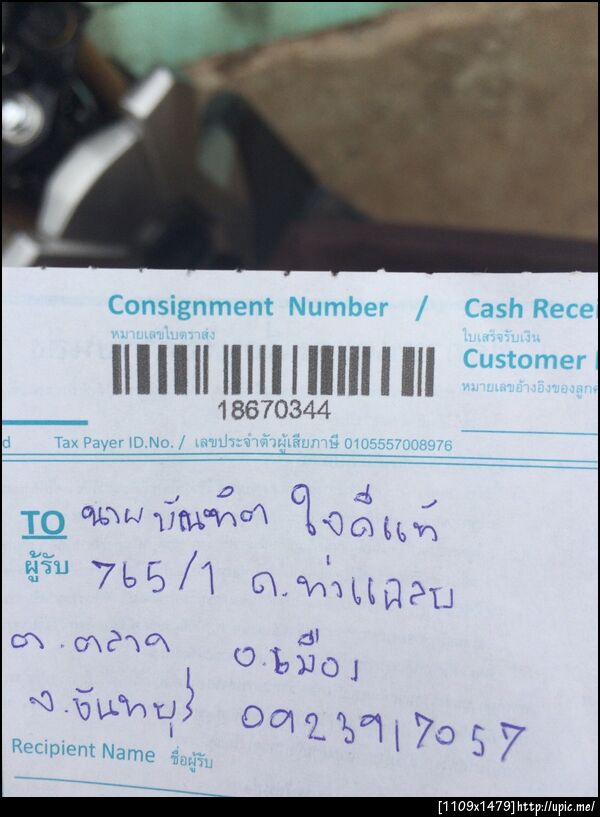 Consignment Number / Cash Recei
หมายเลขใบตราส่ง ใบเสร็จรับเงิน
Customer
หมายเลขอ้างอิงของลูกค
18670344
d Tax Payer ID.No. / เลขประจำตัวผู้เสียภาษี 0105557008976
TO นายบัณฑิต ใจดีแท้
ผู้รับ 765/1 ถ.ท่าแฉลบ
ต.ตลาด อ.เมือง
จ.จันทบุรี 0923917057
Recipient Name ชื่อผู้รับ
[1109x1479]http://upic.me/